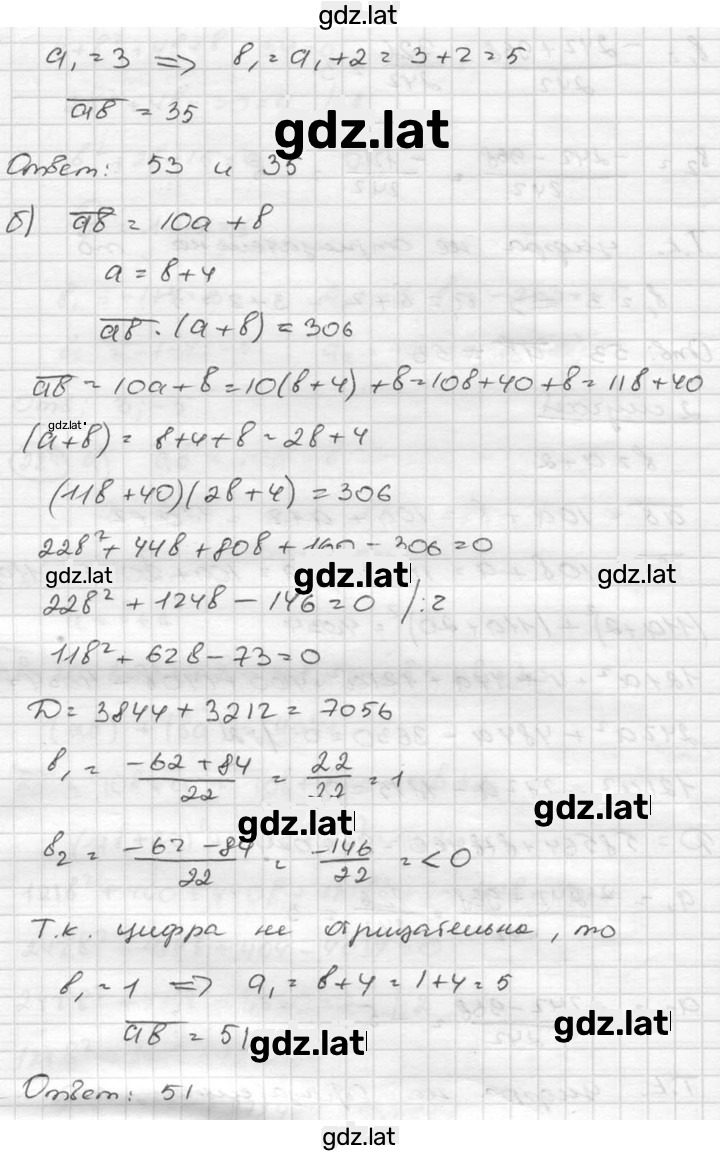 gdz.lat
a₁ = 3 => в₁ = a₁ + 2 = 3 + 2 = 5
ав = 35
gdz.lat
Ответ: 53 и 35
б) ав = 10a + в
a = в + 4
ав · (a + в) = 306
ав = 10a + в = 10(в + 4) + в = 10в + 40 + в = 11в + 40
gdz.lat
(a + в) = в + 4 + в = 2в + 4
(11в + 40)(2в + 4) = 306
22в² + 44в + 80в + 160 - 306 = 0
gdz.lat gdz.lat gdz.lat
22в² + 124в - 146 = 0 /:2
11в² + 62в - 73 = 0
D = 3844 + 3212 = 7056
в₁ = (-62 + 84)/22 = 22/22 = 1
gdz.lat gdz.lat
в₂ = (-62 - 84)/22 = -146/22 = < 0
Т.к. цифра не отрицательна, то
в₁ = 1 => a₁ = в + 4 = 1 + 4 = 5
gdz.lat
ав = 51
gdz.lat
Ответ: 51
gdz.lat